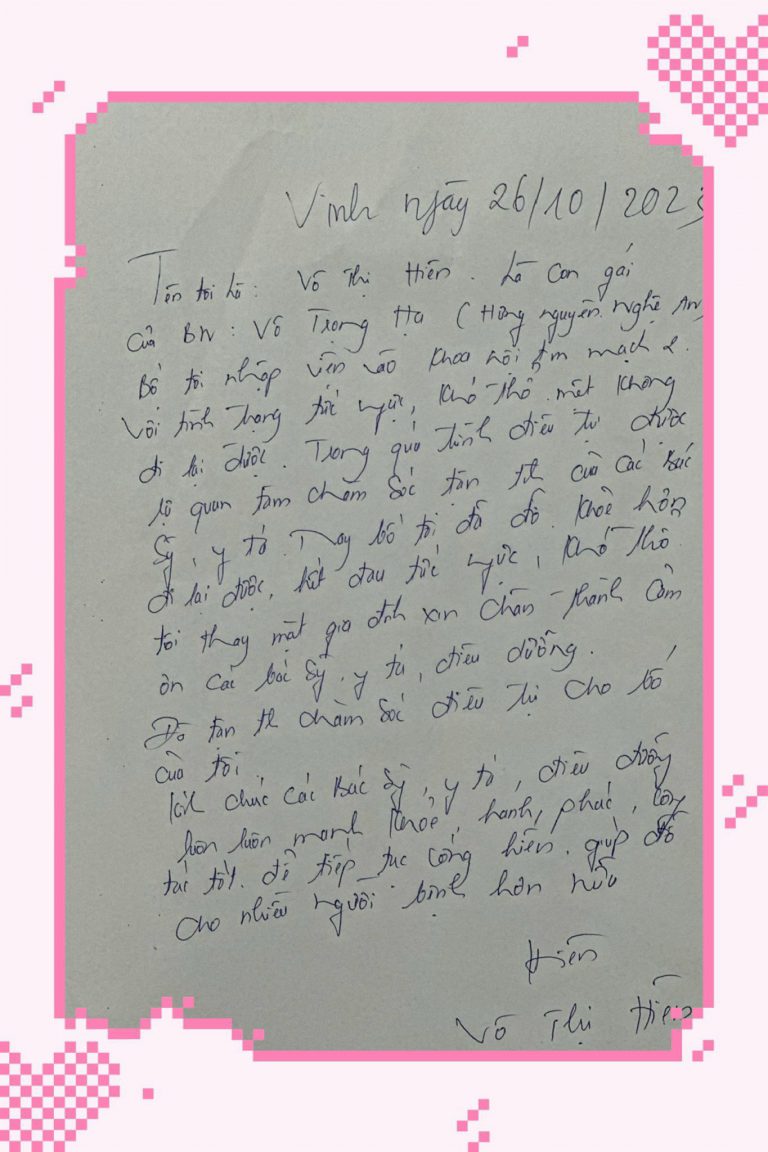 Vinh ngày 26/10/2023
Tên tôi là: Võ Thị Hiền. Là con gái
của BN: Võ Trọng Hạ (Hưng nguyên. Nghệ An)
Bố tôi nhập viện vào khoa nội tim mạch 2.
Với tình trạng tức ngực, khó thở mệt không
đi lại được. Trong quá trình điều trị được
sự quan tâm chăm sóc tận tt của các Bác
Sỹ, y tá. Nay bố tôi đã đỡ. khỏe hơn
đi lại được, hết đau tức ngực, khó thở
tôi thay mặt gia đình xin chân thành cảm
ơn các bác sỹ. y tá, điều dưỡng.
Đã tận tt chăm sóc điều trị cho bố
của tôi.
Kính chúc các Bác sỹ, y tá, điều dưỡng
luôn luôn mạnh khỏe, hạnh phúc, công
tác tốt. để tiếp tục cống hiến. giúp đỡ
cho nhiều người bệnh hơn nữa
Hiền
Võ Thị Hiền